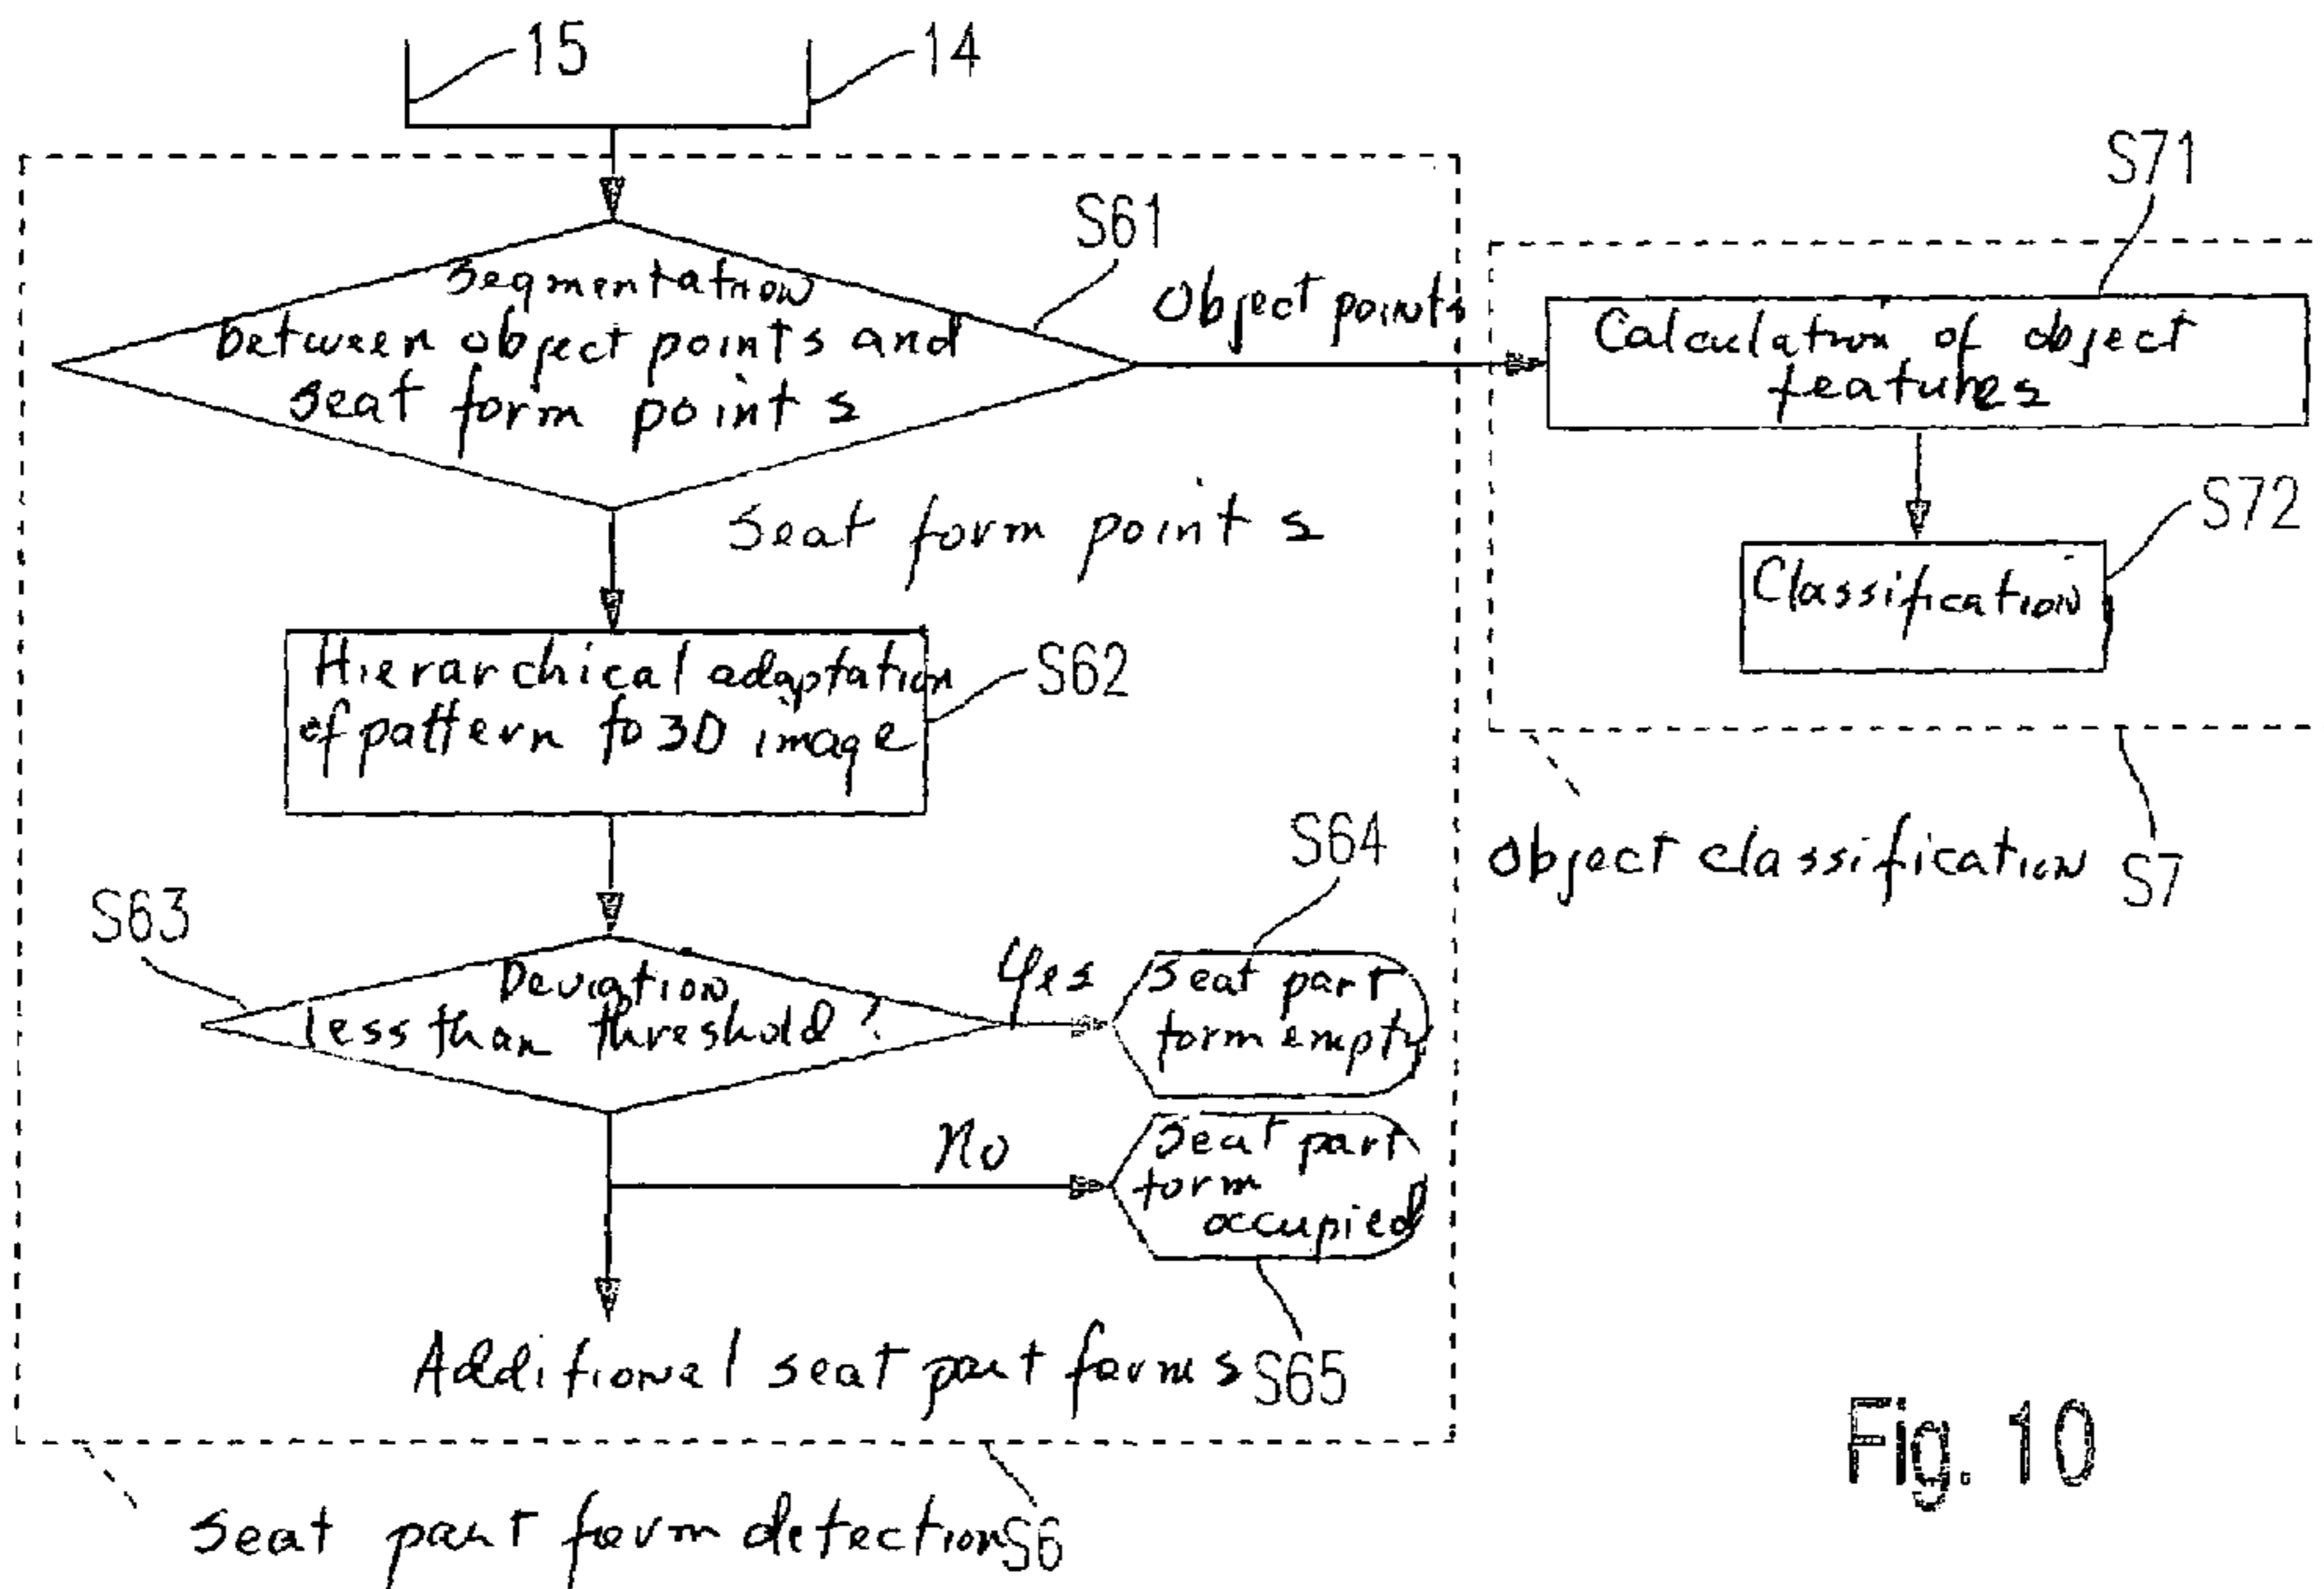 15
14
S61
Segmentation
between object points and
seat form points
Object points
S71
Calculation of object
features
S72
Classification
Seat form points
Hierarchical adaptation
of pattern to 3D image
S62
Object classification S7
S63
Deviation
less than threshold?
Yes
S64
Seat part
form empty
No
Seat part
form
occupied
Additional seat part forms
S65
Seat part form detection S6
Fig. 10